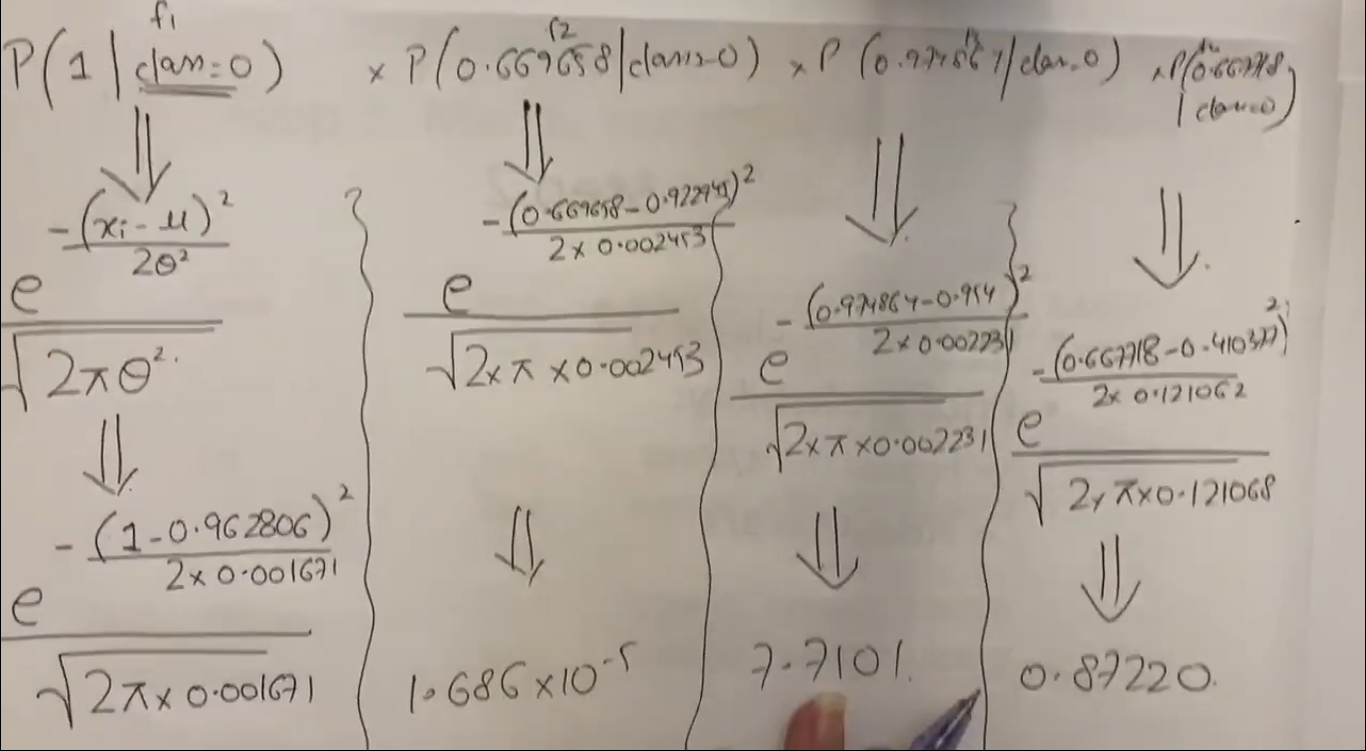 f1 f2
P(1 | class=0) × P(0.669658 | class=0) × P(0.974867 | class=0) × P(0.667718 | class=0)
⇓ ⇓ ⇓ ⇓
e^(-(xᵢ - μ)²/2θ²) / √(2πθ²)
⇓
e^(-(1-0.962806)²/(2×0.001671)) / √(2π×0.001671)
e^(-(0.669658-0.922945)²/(2×0.002453)) / √(2×π×0.002453)
⇓
1.686×10⁻⁵
e^(-(0.974864-0.954)²/(2×0.002231)) / √(2×π×0.002231)
⇓
7.7101
e^(-(0.667718-0.410377)²/(2×0.121062)) / √(2×π×0.121068)
⇓
0.87220